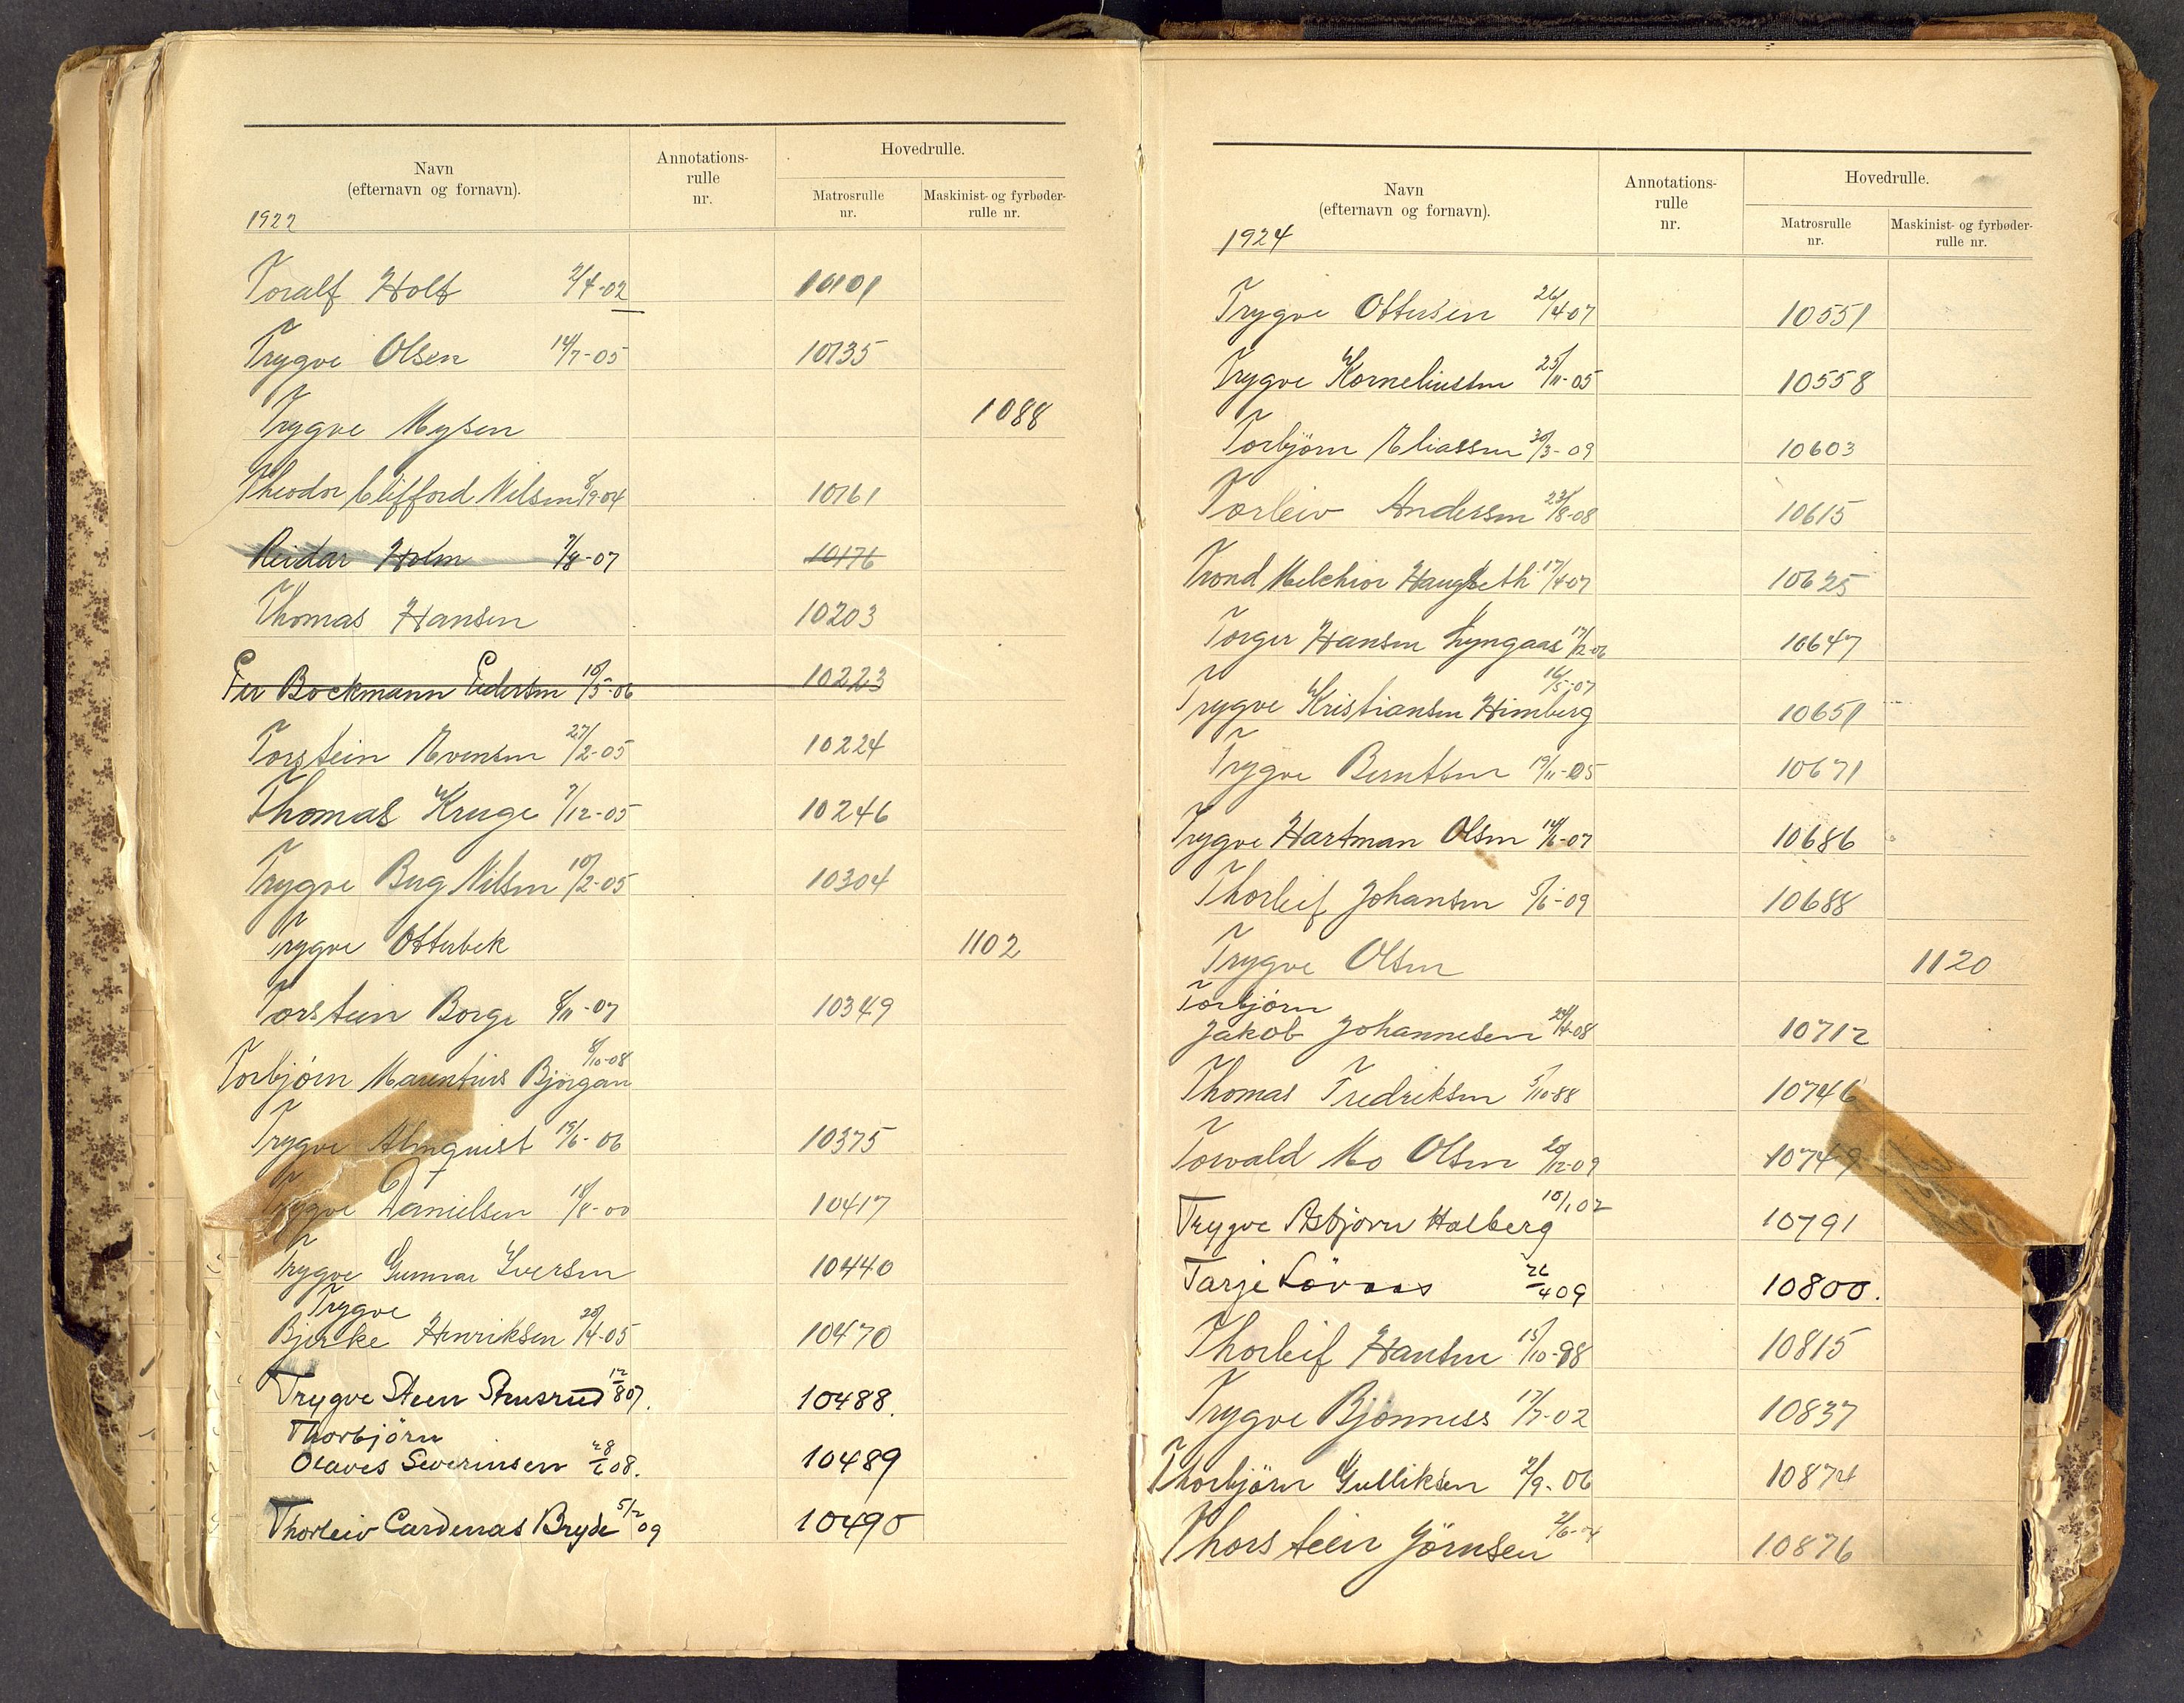 Navn
(efternavn og fornavn).
Annotations-
rulle
nr.
Hovedrulle.
Matrosrulle
nr.
Maskinist- og fyrbøder-
rulle nr.
1922
Toralf Holt 2/4-02 10101
Trygve Olsen 14/7-05 10135
Trygve Mysen 1088
Theodor Clifford Nilsen 8/9-04 10161
Reidar Holm 7/8-07 10176
Thomas Hansen 10203
Per Bockmann Pedersen 10/5-06 10223
Torstein Evensen 27/2-05 10224
Thomas Kruge 7/12-05 10246
Trygve Berg Nilsen 10/2-05 10304
Trygve Otterbek 1102
Torstein Borge 8/11-07 10349
8/10-08
Torbjørn Marentius Bjørgan
Trygve Almquist 19/6-06 10375
Trygve Danielsen 18/8-00 10417
Trygve Gunnar Iversen 10440
Trygve
Bjerke Henriksen 20/4-05 10470
Trygve Steen Stusrud 12/8 07. 10488.
Thorbjörn
Olaves Severinsen 28/6 08. 10489
Thorleiv Cardenas Bryde 5/2 09 10490
Navn
(efternavn og fornavn).
Annotations-
rulle
nr.
Hovedrulle.
Matrosrulle
nr.
Maskinist- og fyrbøder-
rulle nr.
1924
Trygve Ottersen 26/4-07 10551
Trygve Korneliussen 25/11-05 10558
Torbjørn Eliassen 30/3-09 10603
Torleiv Andersen 23/8-08 10615
Trond Melchior Haugseth 17/4-07 10625
Torger Hansen Lyngaas 17/12-06 10647
16/5-07
Trygve Kristiansen Himberg 10651
Trygve Berntsen 19/11-05 10671
Trygve Hartman Olsen 14/6-07 10686
Thorleif Johansen 5/6-09 10688
Trygve Olsen 1120
Torbjørn
Jakob Johannesen 24/4-08 10712
Thomas Fredriksen 5/10-88 10746
Torvald Mo Olsen 20/12-09 10749
Trygve Asbjørn Holberg 10/1 02 10791
Tarje Lövaas 26/4 09 10800.
Thorleif Hansen 15/10-98 10815
Trygve Bjønness 17/7-02 10837
Thorbjørn Gulliksen 2/9-06 10874
Thorstein Jørnsen 2/6-04 10876